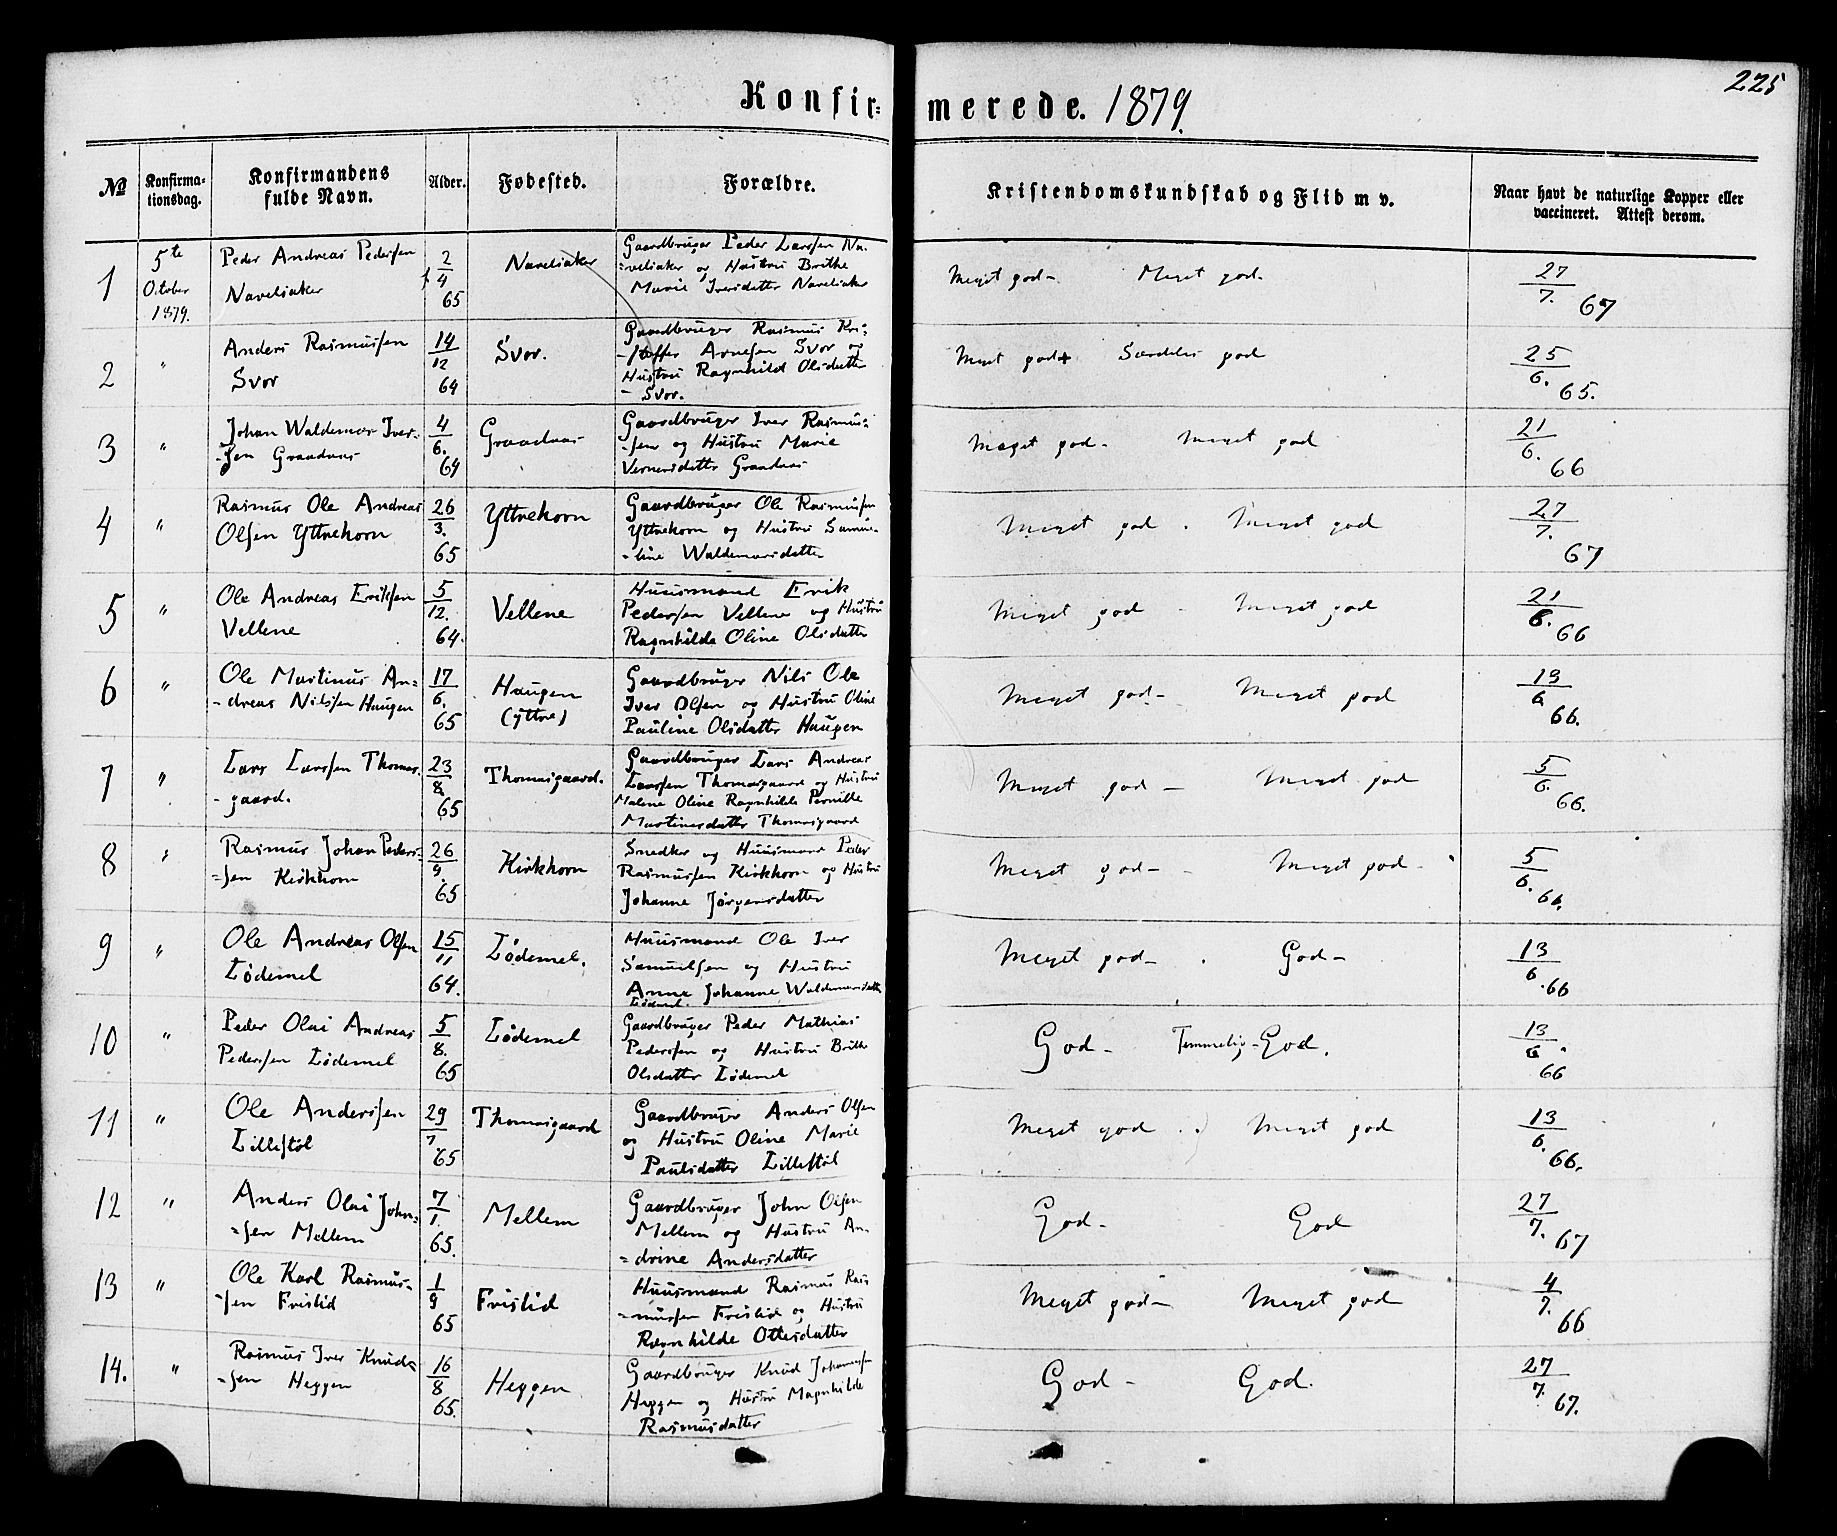 225
Konfir=merede. 1879.
№ Konfirma-tionsdag. Konfirmandens fulde Navn. Alder. Fødested. Forældre. Kristendomskundskab og Flid m v. Naar havt de naturlige Kopper eller vaccineret. Attest derom.
1 5te October 1879.
Peder Andreas Pedersen
Naveliaker
2/4 65
Naveliaker
Gaardbruger Peder Larssen Na-
=veliaker og Hustru Brithe
Marie Iversdatter Naveliaker
Meget god- Meget god.
27/7. 67
2 "
Anders Rasmussen
Svor
14/12 64
Svor.
Gaardbruger Rasmus Kri-
-stoffer Arnesen Svor og
Hustru Ragnhild Olsdatter
- Svor.
Meget god+ Særdeles god
25/6. 65.
3 "
Johan Waldemar Iver-
-sen Graadaas
4/6. 64
Graadaas
Gaardbruger Iver Rasmus-
-sen og Hustru Marie
Vernersdatter Graadaas
Meget god- Meget god
21/6. 66
4 "
Rasmus Ole Andreas
Olsen Yttrehorn
26/3. 65
Yttrehorn
Gaardbruger Ole Rasmussen
Yttrehorn og Hustru Samue-
-line Waldemarsdatter
Meget god . Meget god
27/7. 67
5 "
Ole Andreas Eriksen
Vellene
5/12. 64.
Vellene
Huusmand Erik
Pedersen Vellene og Hustru
Ragnhilda Oline Olsdatter
Meget god - Meget god
21/6. 66
6 "
Ole Martinus An-
-dreas Nilsen Haugen
17/6. 65
Haugen
(yttre)
Gaardbruger Nils Ole
Iver Olsen og Hustru Oline
Pauline Olsdatter Haugen
Meget god- Meget god
19/6 66.
7 "
Lars Larssen Thomas-
-gaard.
23/8 65
Thomasgaard.
Gaardbruger Lars Andreas
Larssen Thomasgaard og Hustru
Malene Oline Ragnhilde Pernille
Martinusdatter Thomasgaard
Meget god - Meget god
5/6. 66.
8 "
Rasmus Johan Peder-
=sen Kirkhorn
26/9. 65
Kirkhorn
Snedker og Huusmand Peder
Rasmussen Kirkhorn og Hustru
Johanne Jørgensdatter
Meget god- - Meget god-
5/6. 66.
9 "
Ole Andreas Olsen
Lødemel
15/11 64.
Lødemel.
Huusmand Ole Iver
Samuelsen og Hustru
Anna Johanne Waldemarsdatter
Lødemel.
Meget god- . God-
13/6 66
10 "
Peder Olai Andreas
Pedersen Lødemel
5/8. 65
Lødemel
Gaardbruger Peder Mathias
Pedersen og Hustru Brithe
Olsdatter Lødemel
God- Temmelig-God.
13/6 66
11 "
Ole Andersen
Lillestøl
29/7 65
Thomasgaard
Gaardbruger Anders Olsen
og Hustru Oline Marie
Paulsdatter Lillestøl
Meget god . Meget god
13/6. 66.
12 "
Anders Olai John-
=sen Mellem
7/1. 65.
Mellem
Gaardbruger John Olsen
Mellem og Hustru An-
=drine Andersdatter
God- God
27/7. 67
13 "
Ole Karl Rasmus-
-sen Fristid
1/9 65
Fristid
Huusmand Rasmus Ras
-mussen Fristid og Hustru
Ragnhilde Ottesdatter
Meget god- Meget god
4/7. 66
14. "
Rasmus Iver Knud-
-sen Heggen
16/8 65.
Heggen
Gaardbruger Knud Johannessen
Heggen og Hustru Magnhilde
Rasmusdatter
God- God.
27/7. 67.